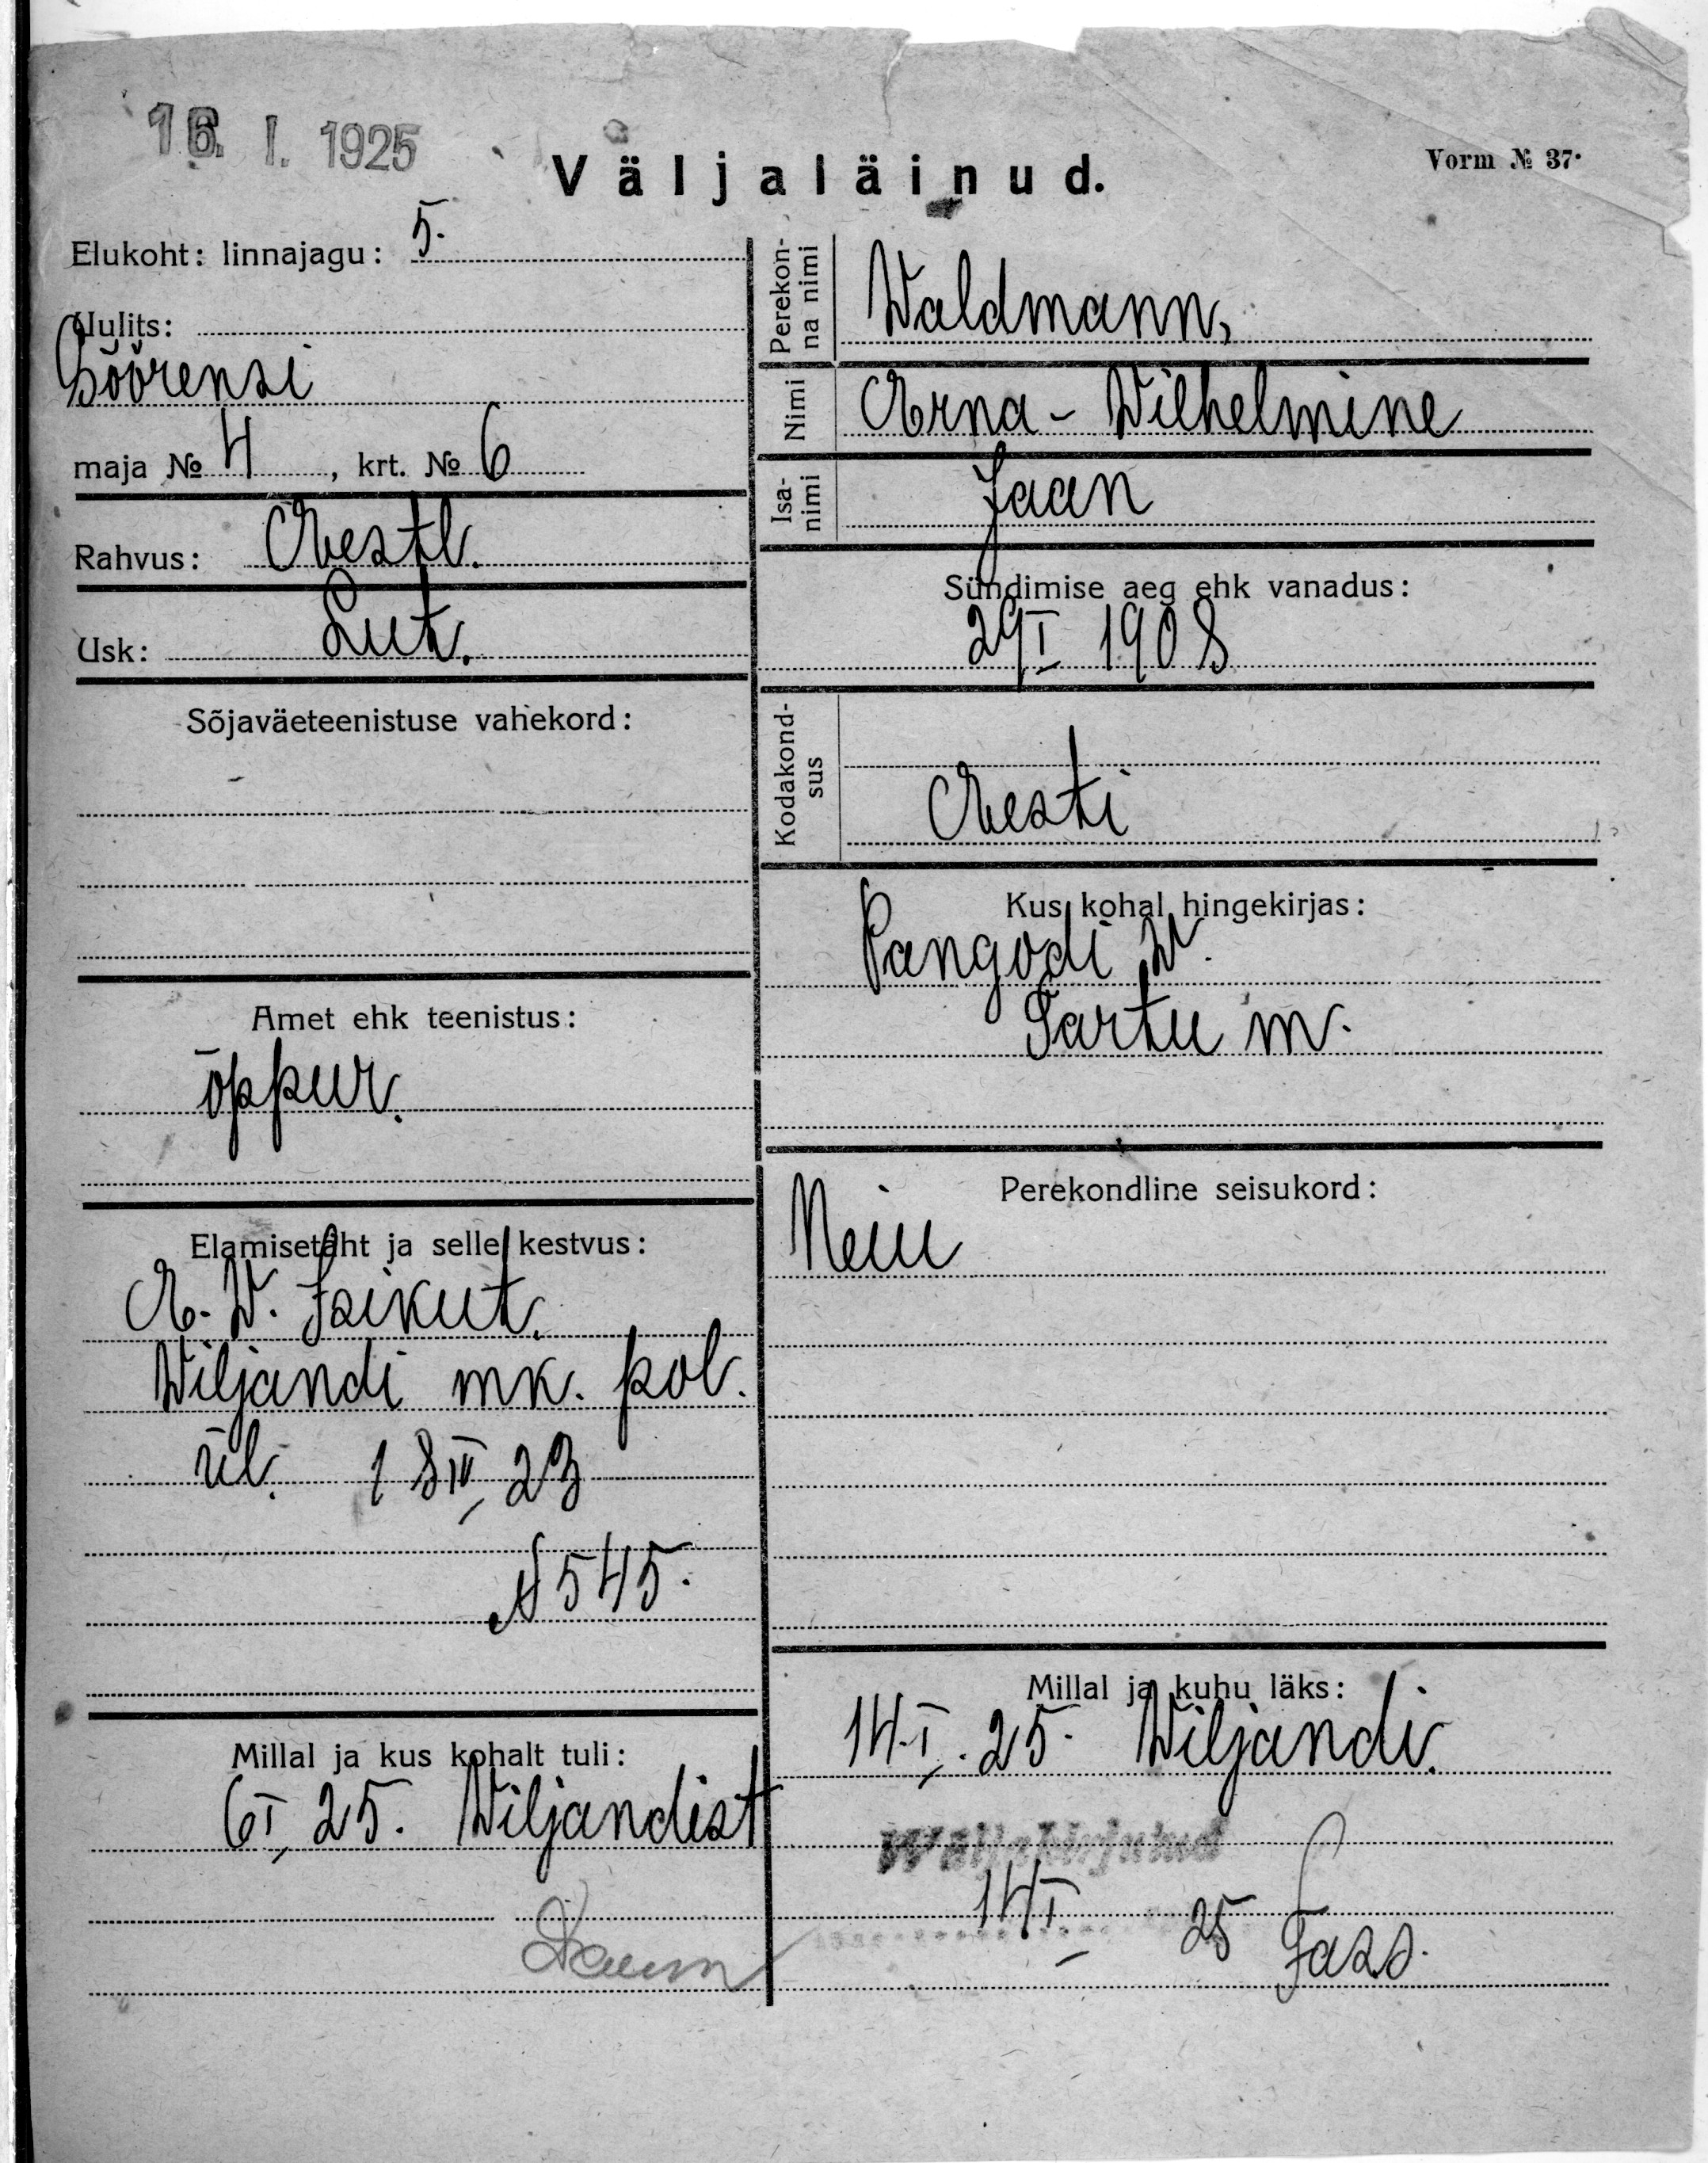 16. I. 1925
Väljaläinud.
Vorm № 37.
Elukoht: linnajagu: 5.
Uulits:
Söörensi
maja № 4, krt. № 6
Rahvus: Eestl.
Usk: Lut.
Sõjaväeteenistuse vahekord:
-
Amet ehk teenistus:
õppur.
Elamisetäht ja selle kestvus:
E. W. Isikut.
Wiljandi mk. pol.
ül. 18 IV 23
№ 545.
Millal ja kus kohalt tuli:
6 I 25. Wiljandist
Perekonna nimi
Waldmann,
Nimi
Erna - Wilhelmine
Isanimi
Jaan
Sündimise aeg ehk vanadus:
29 I 1908
Kodakondsus
Eesti
Kus kohal hingekirjas:
Pangodi W.
Tartu m.
Perekondline seisukord:
Neiu
Millal ja kuhu läks:
14. I. 25. Wiljandi.
Wäljakirjutud
14 I 25